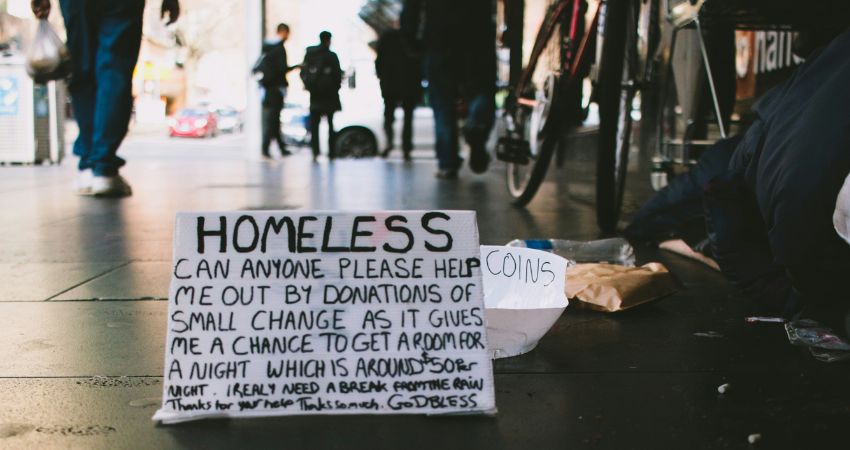 HOMELESS
CAN ANYONE PLEASE HELP
ME OUT BY DONATIONS OF
SMALL CHANGE AS IT GIVES
ME A CHANCE TO GET A ROOM FOR
A NIGHT WHICH IS AROUND $50 PER
NIGHT. I REALY NEED A BREAK FROM THE RAIN
Thanks for your help Thanks so much. GODBLESS
COINS